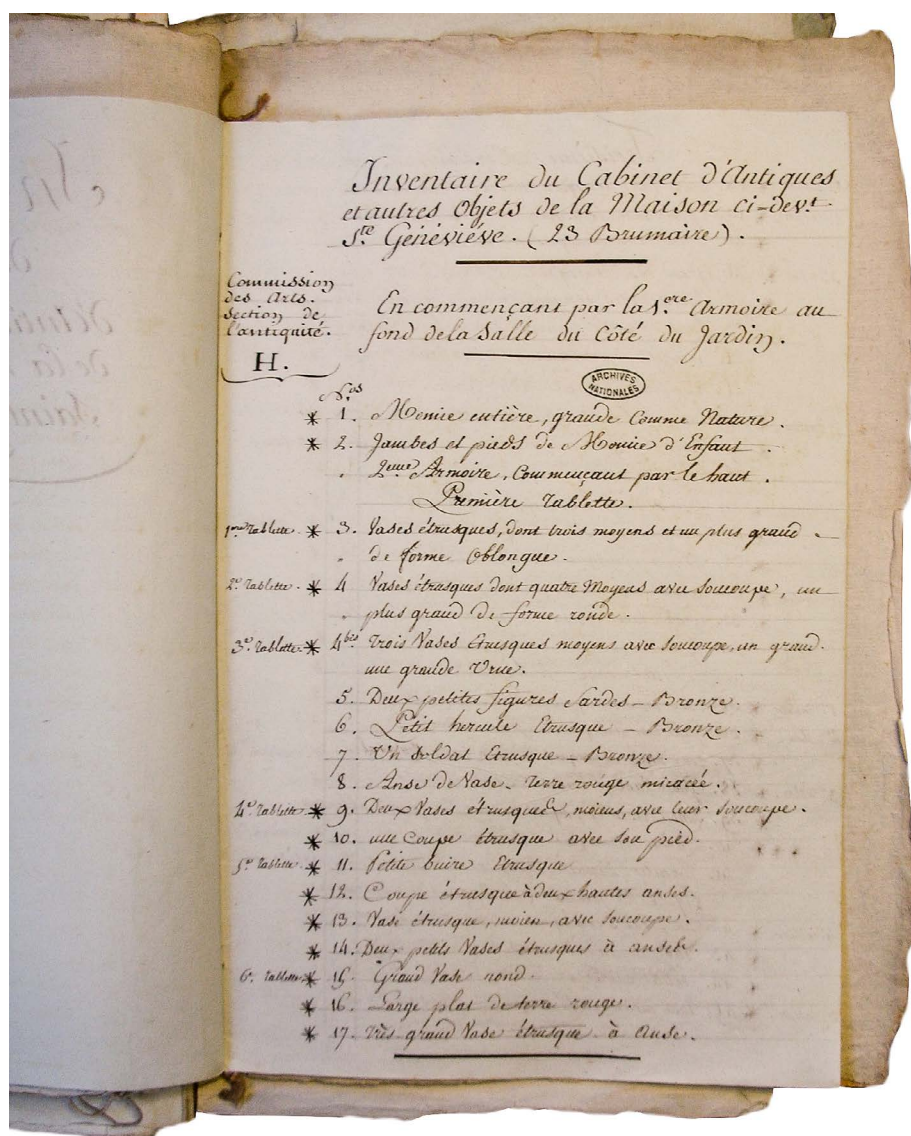 Inventaire du Cabinet d'Antiques
et autres Objets de la Maison ci-dev.t
S.te Généviéve. (23 Brumaire).
Commission
des Arts.
Section de
l'antiquité.
H.
En commençant par la 1.ere Armoire au
fond de la Salle du Côté du Jardin.
ARCHIVES
NATIONALES
N.os
* 1. Momie entière, grande Comme Nature.
* 2. Jambes et pieds de Momie d'Enfant.
2.eme Armoire, Commençant par le haut.
Première Tablette.
1.ere Tablette. * 3. Vases étrusques, dont trois moyens et un plus grand
de forme Oblongue.
2.e Tablette. * 4 Vases étrusques dont quatre Moyens avec Soucoupe, un
plus grand de forme ronde.
3.e Tablette * 4.bis Trois Vases Etrusques moyens avec Soucoupe, un grand.
une grande Urne.
5. Deux petites figures Sardes - Bronze.
6. Petit hercule Etrusque - Bronze.
7. Un Soldat Etrusque - Bronze.
8. Anse de Vase - Terre rouge micacée.
4.e Tablette * 9. Deux Vases étrusques, moiens, avec leur Soucoupe.
* 10. une Coupe étrusque avec son pied.
5.e Tablette * 11. Petite buire Etrusque
* 12. Coupe étrusque à deux hautes anses.
* 13. Vase étrusque, moien, avec Soucoupe.
* 14. Deux petits Vases étrusques à anses.
6.e Tablette * 15. Grand Vase rond.
* 16. Large plat de terre rouge.
* 17. Très grand Vase étrusque à Anse.